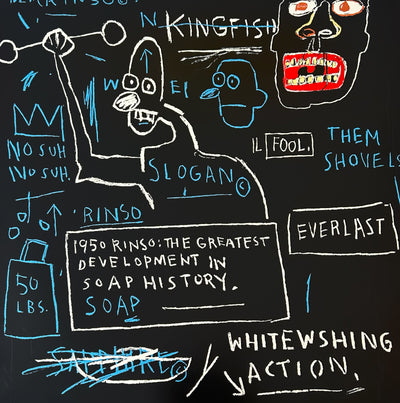 N KINGFISH
W EI
IL FOOL.
THEM
SHOVELS
NO SUH
NO SUH.
SLOGAN ©
RINSO
EVERLAST
1950 RINSO: THE GREATEST
DEVELOPMENT IN
SOAP HISTORY.
SOAP
50
LBS.
SAPPHIRE ©
WHITEWSHING
ACTION.